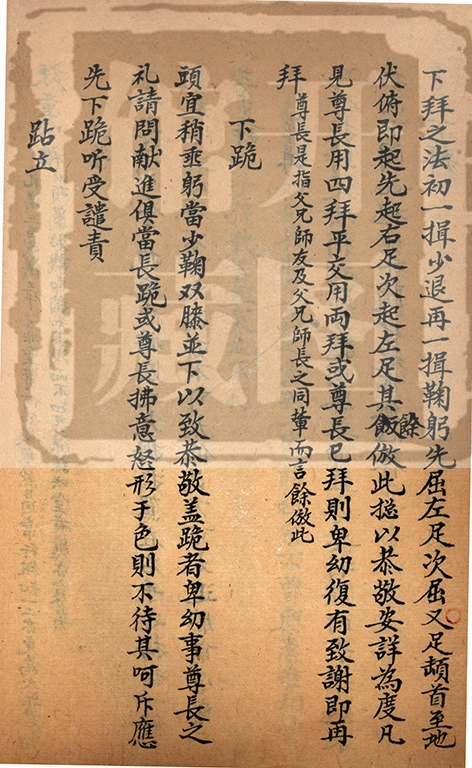 下拜之法初一揖少退再一揖鞠躬先屈左足次屈又足頓首至地
伏俯即起先起右足次起左足其餘倣此揔以恭敬安詳為度凡
見尊長用四拜平交用両拜或尊長已拜則卑幼復有致謝即再
拜尊長是指父兄師友及父兄師長之同軰而言餘倣此
下跪
頭宜稍垂躬當少鞠双膝並下以致恭敬盖跪者卑幼事尊長之
礼請問献進俱當長跪或尊長拂意怒形于色則不待其呵斥應
先下跪听受譴責
跕立